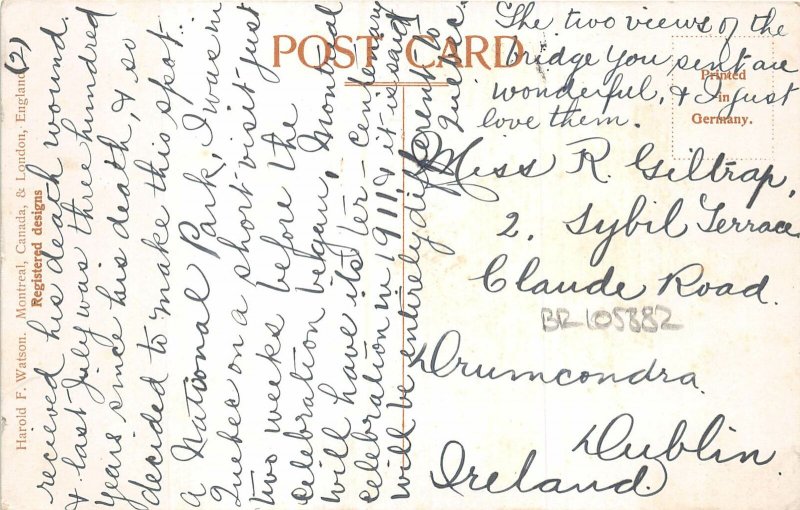 POST CARD
Printed
in
Germany.
Harold F. Watson. Montreal, Canada, & London, England
Registered designs
(2)
recieved his death wound.
& last July was three hundred
years since his death, & so
decided to make this spot
a National Park, I was in
Quebec on a short visit just
two weeks before the
celebration began, Montreal
will have its ter-centenary
celebration in 1911, & it is said
will be entirely different to
Quebec.
The two views of the
bridge you sent are
wonderful, & I just
love them.
Miss R. Giltrap,
2. Sybil Terrace
Claude Road.
BR105882
Drumcondra.
Dublin.
Ireland.